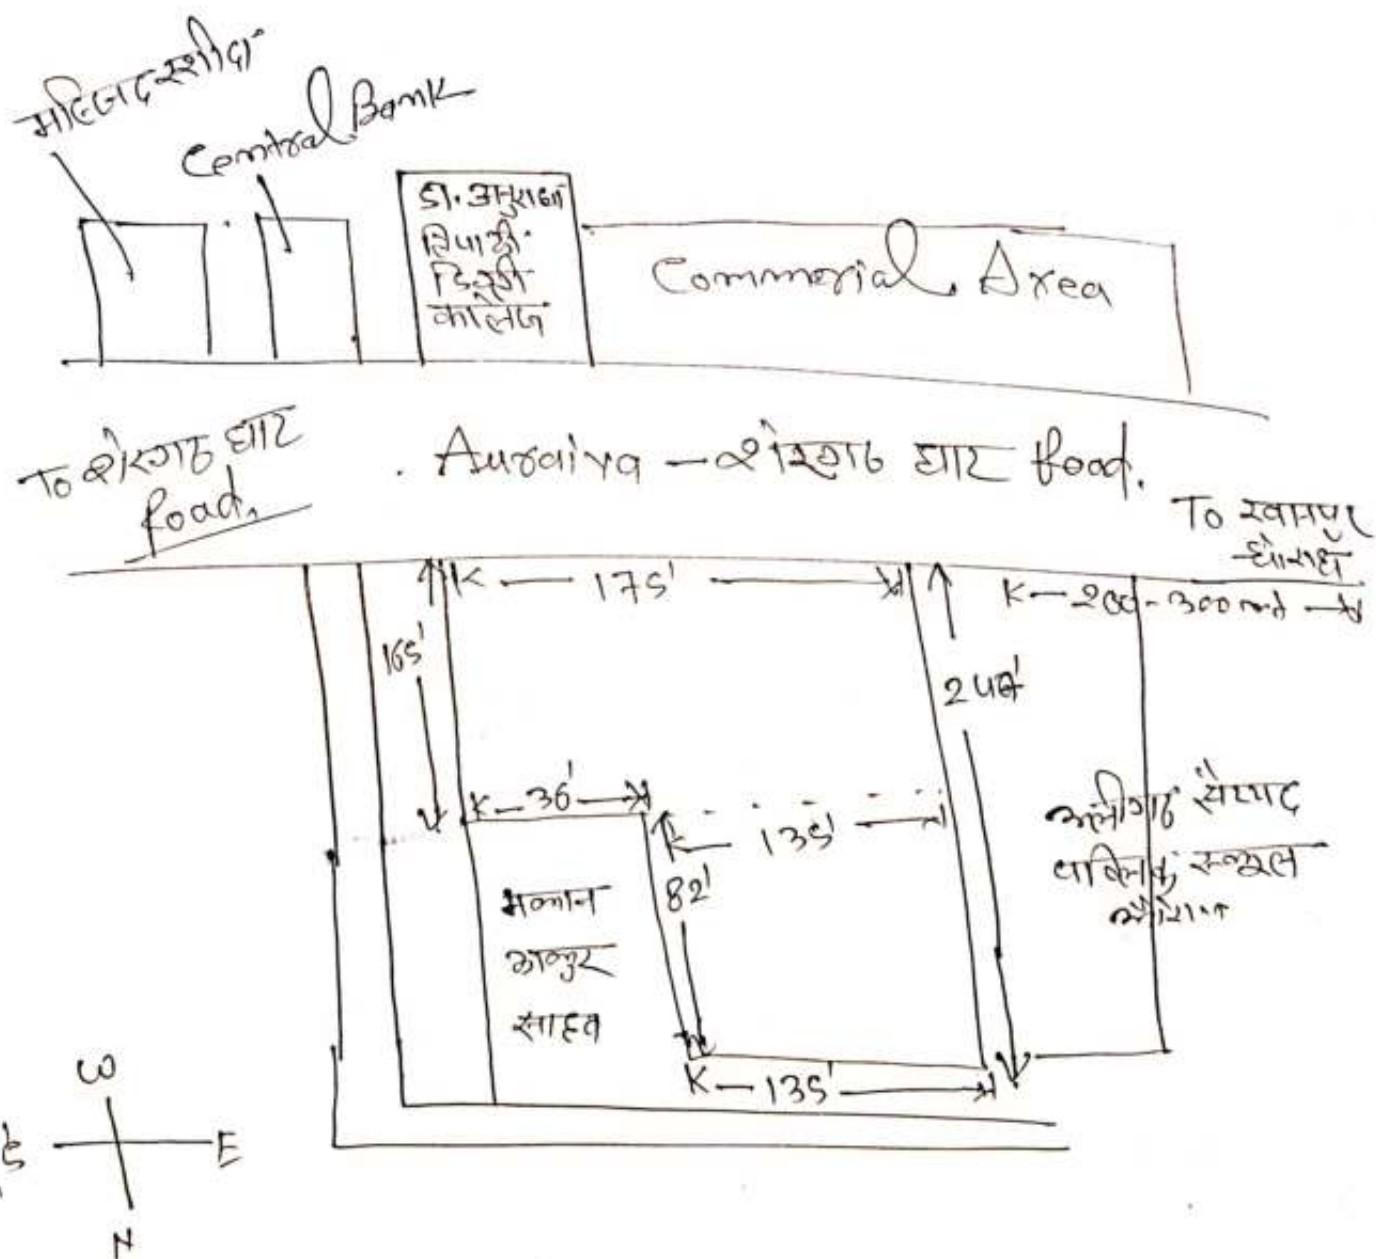 मस्जिद रशीदा
Central Bank
डा. अनुराधा
त्रिपाठी
डिग्री
कालेज
Commerial Area
To शेरगढ़ घाट
Road.
Auraiya - शेरगढ़ घाट Road.
To खानपुर
चौराहे
175'
200-300
165'
36'
135'
82'
मकान
ठाकुर
साहब
अलीगढ़ सैय्यद
पब्लिक स्कूल
135'
W
E
N